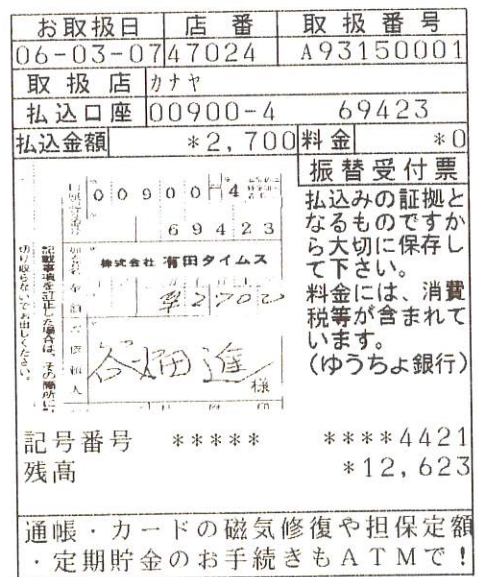 お取扱日 店番 取扱番号
06-03-07 47024 A93150001
取扱店 カナヤ
払込口座 00900-4 69423
払込金額 *2,700 料金 *0
振替受付票
払込みの証拠と
なるものですか
ら大切に保存し
て下さい。
料金には、消費
税等が含まれて
います。
(ゆうちょ銀行)
00900-4
69423
株式会社 有田タイムス
2700
様
記載事項を訂正した場合は、その箇所に
切り取らないでお出しください。
記号番号 ***** ****4421
残高 *12,623
通帳・カードの磁気修復や担保定額
・定期貯金のお手続きもATMで!